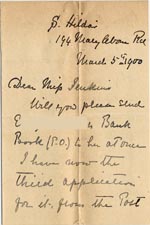 S. Hilda's
194 Mary Alvan Rd
March 5th 1900
Dear Miss Jenkins
Will you please send
E Bank
Book (P.O.) to her at once
I have now the
third application
for it, from the Post